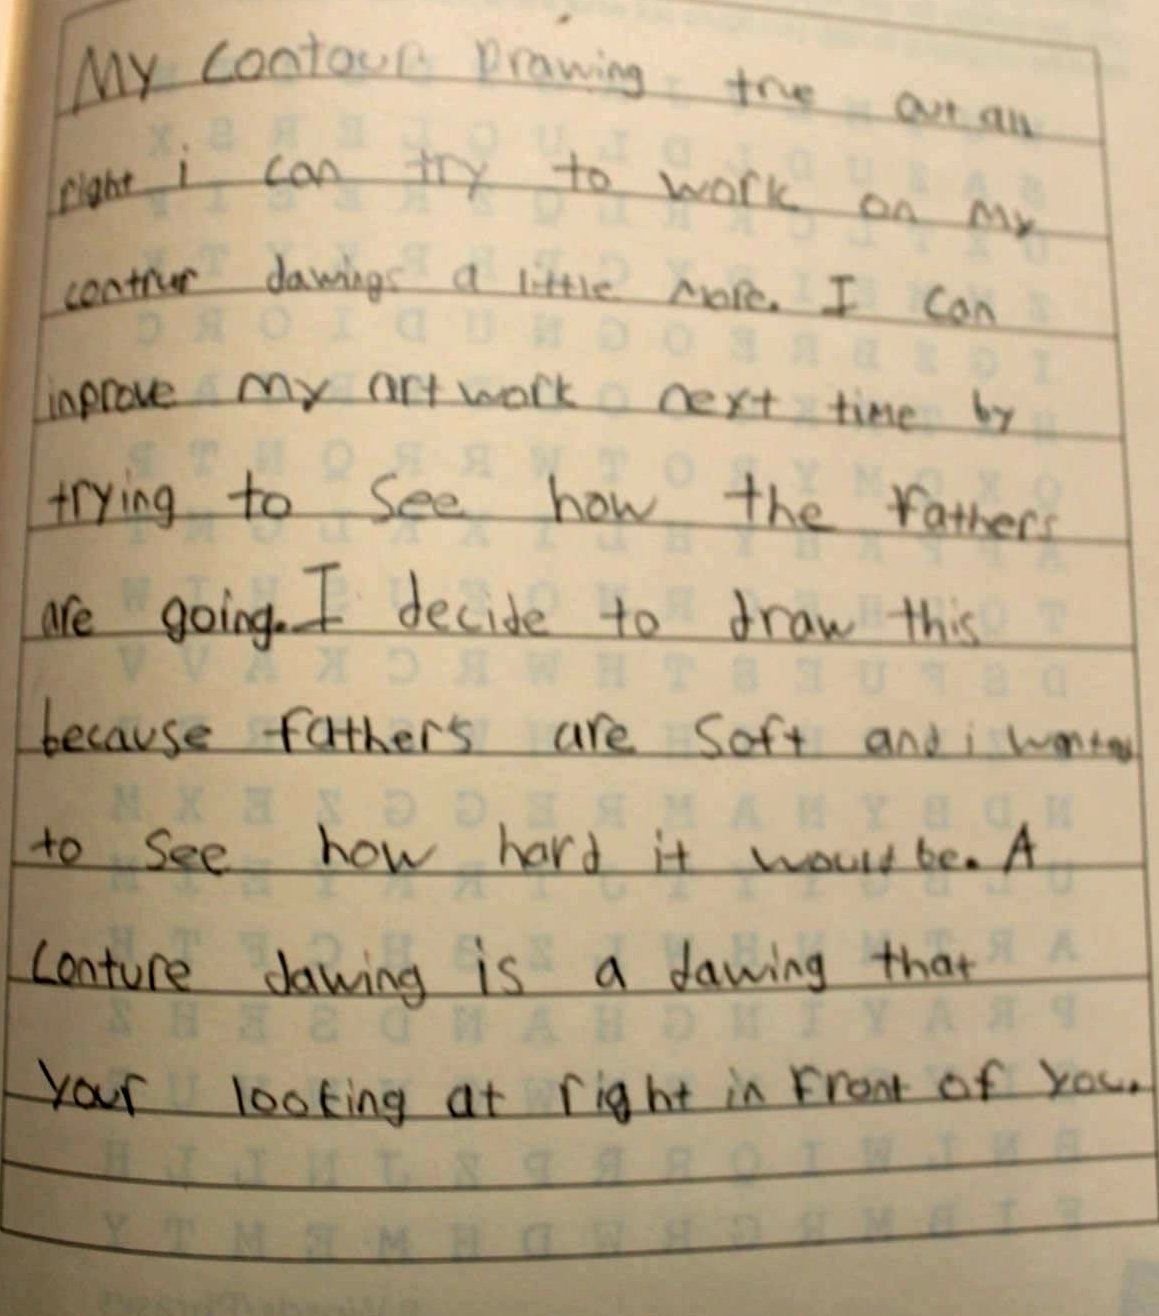 My contour Drawing trne out all
right i can try to work on my
contrur dawings a little more. I can
inprove my art work next time by
trying to see how the fathers
are going. I decide to draw this
because fathers are soft and i wanted
to see how hard it would be. A
conture dawing is a dawing that
your looking at right in front of you.